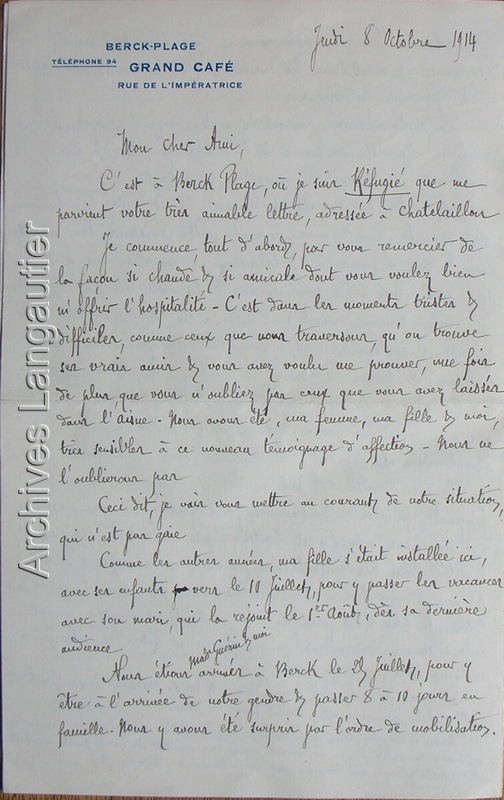 BERCK-PLAGE
TÉLÉPHONE 94 GRAND CAFÉ
RUE DE L'IMPÉRATRICE
Jeudi 8 Octobre 1914
Mon cher Ami,
C'est à Berck Plage, où je suis Réfugié que me
parvient votre très aimable lettre, adressée à Châtelaillon
Je commence, tout d'abord, par vous remercier de
la façon si chaude & si amicale dont vous voulez bien
m'offrir l'hospitalité - C'est dans les moments tristes &
difficiles, comme ceux que nous traversons, qu'on trouve
ses vrais amis & vous avez voulu me prouver, une fois
de plus, que vous n'oubliez pas ceux que vous avez laissés
dans l'Aisne - Nous avons été, ma femme, ma fille & moi,
très sensibles à ce nouveau témoignage d'affection - Nous ne
l'oublierons pas
Ceci dit, je vais vous mettre au courant de notre situation,
qui n'est pas gaie
Comme les autres années, ma fille s'était installée ici,
avec ses enfants vers le 10 Juillet, pour y passer les vacances
avec son mari, qui la rejoint le 1er Août, dès sa dernière
audience
Made Guérin & moi
Nous étions arrivés à Berck le 25 Juillet, pour y
être à l'arrivée de notre gendre & passer 8 à 10 jours en
famille. Nous y avons été surpris par l'ordre de mobilisation.
Archives Langautier